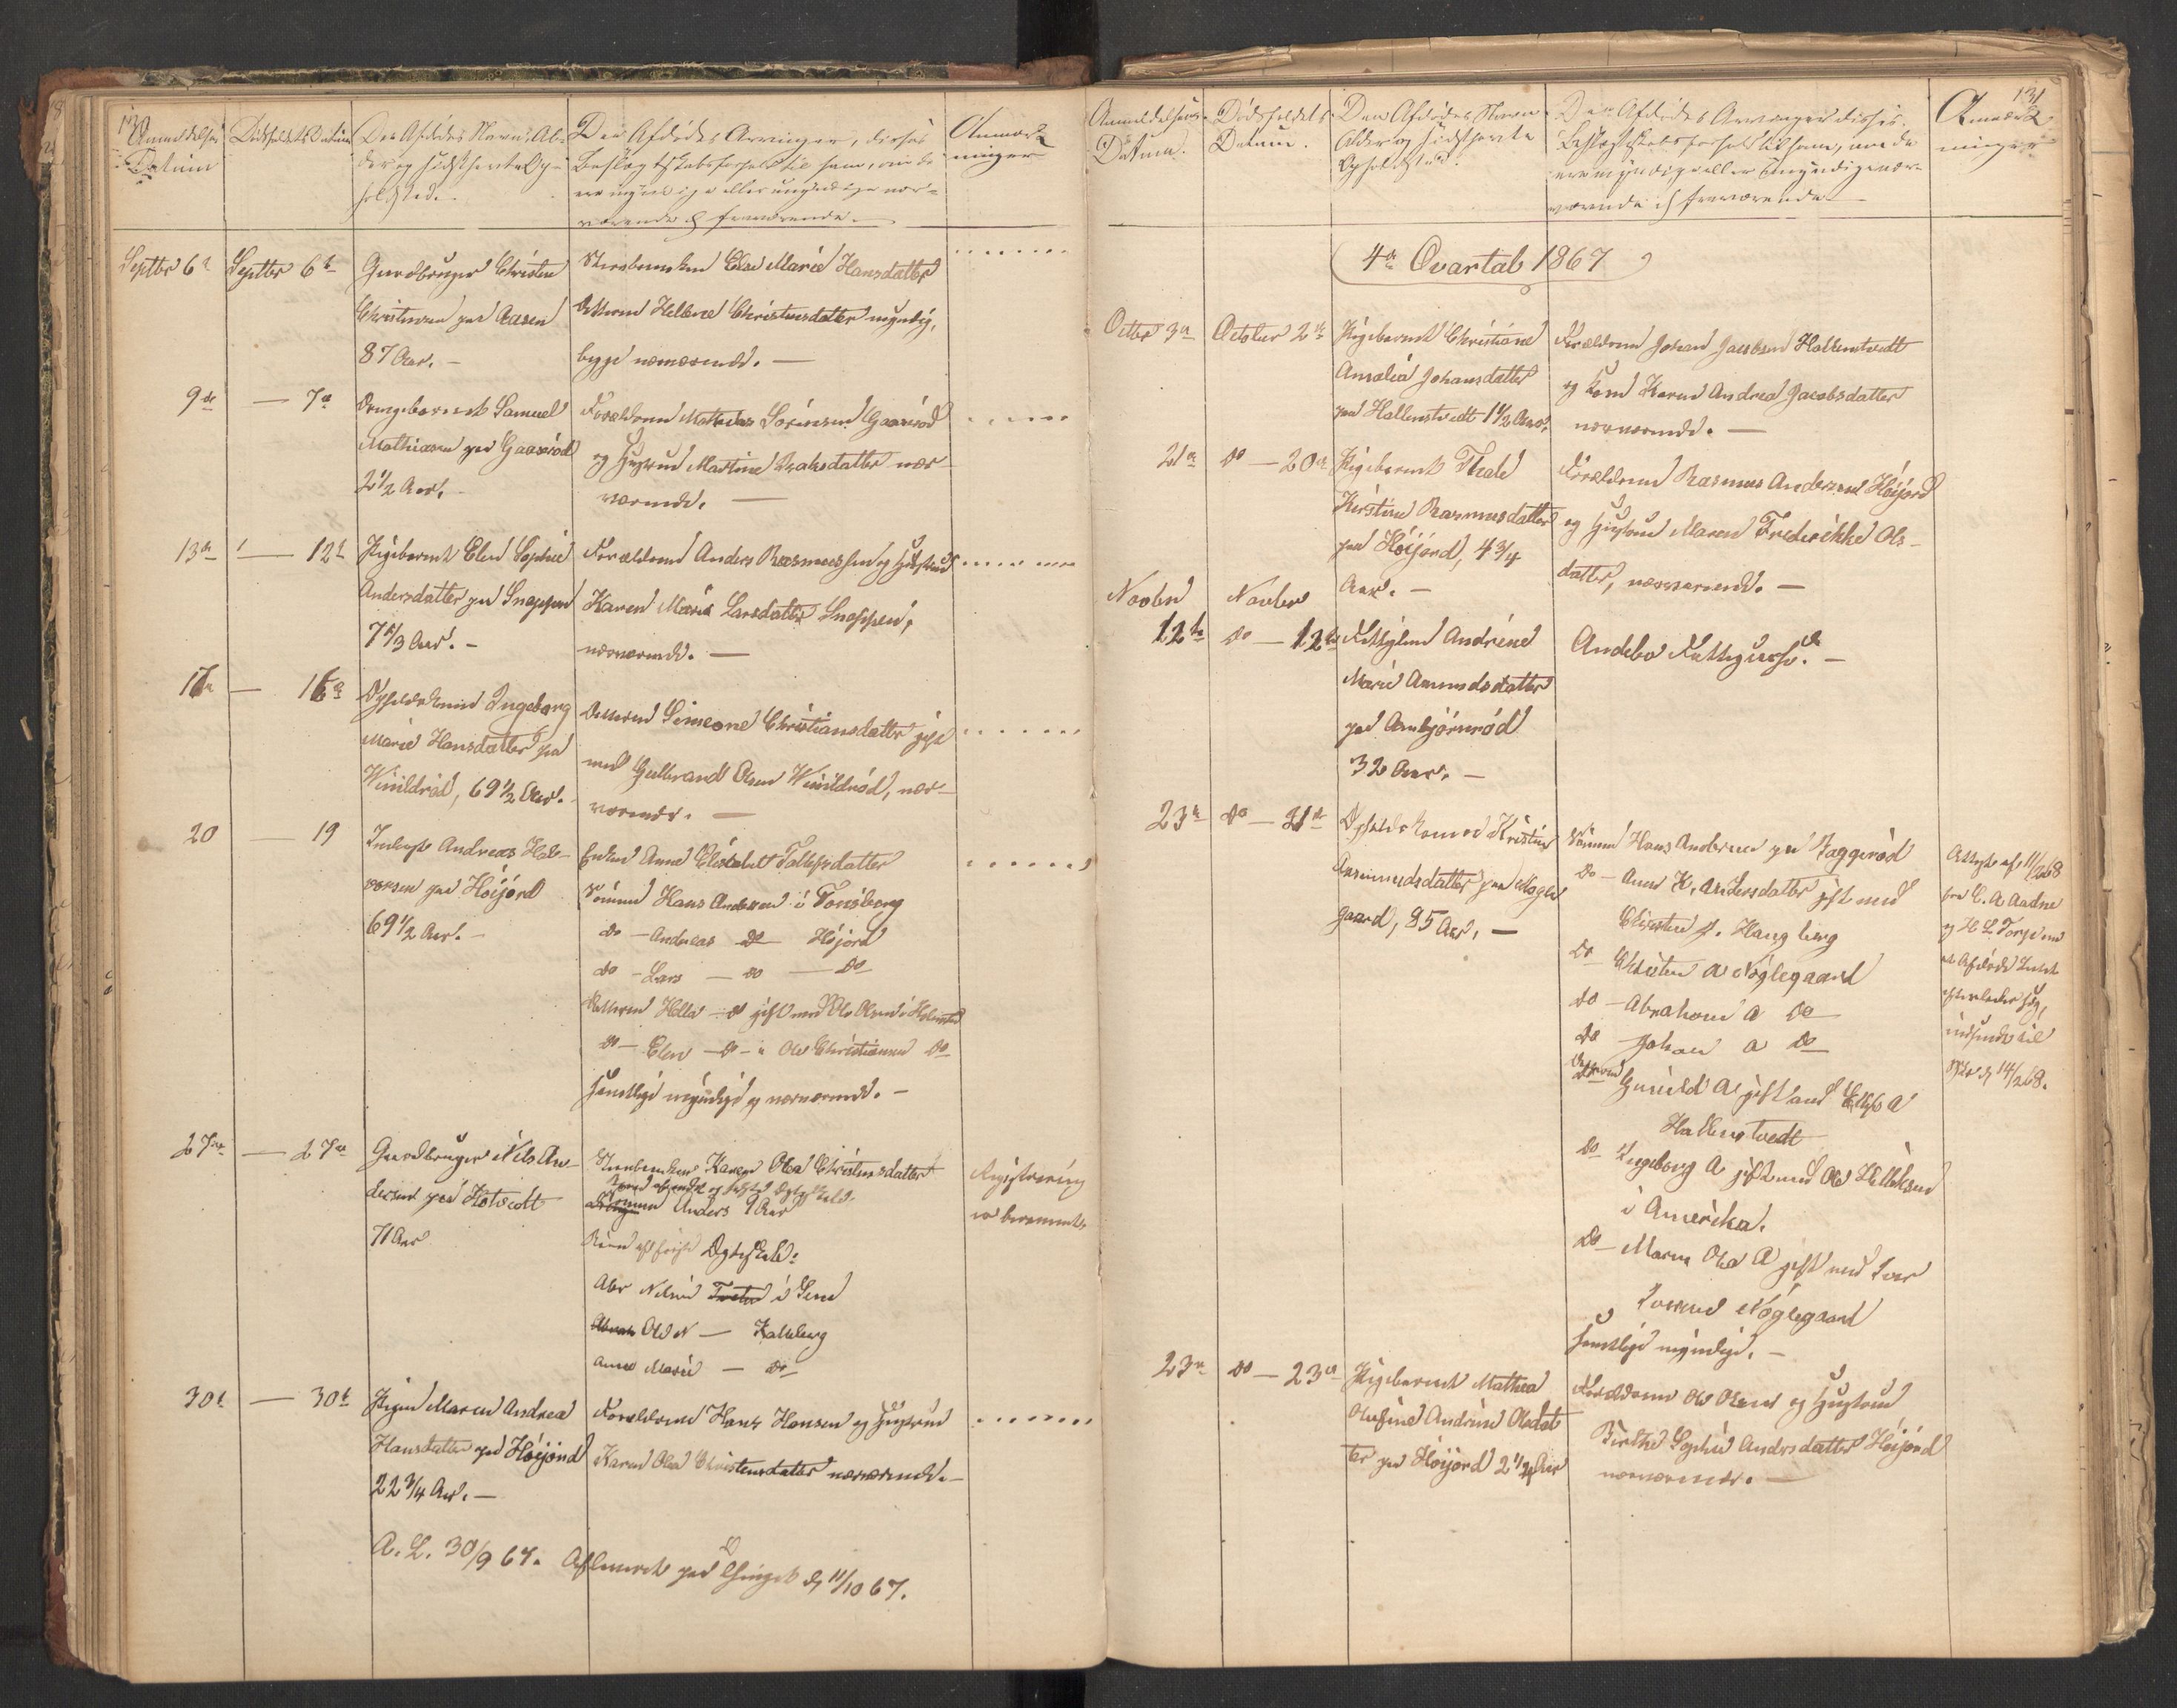 Anmeldelses
Datum
Dødsfaldets Datum
Den Afdødes Navn, Al-
der og sidsthavte Op-
holdsted.
Den Afdødes Arvinger, disses
Beslægtskabsforhold til ham, om de
ere myndige eller umyndige nær-
værende & fraværende.
Anmærk-
ninger
Septbr 6te
Septbr 6te
Gaardbruger Christen
Christensen paa Aasen
87 Aar. -
Stervboenken Else Marie Hansdatter
Datteren Hellene Christensdatter myndig,
begge nærværende. -
9de
— 7de
Drengebarnet Samuel
Mathiasen paa Gaasrød
2 1/2 Aar. -
Forældrene Mathias Sørensen Gaasrød
og Hustrue Martine datter nær-
værende. —
13de
— 12te
Pigebarnet Elen Sophie
Andersdatter paa Snappen
Aar. -
Forældrene Anders Rasmussen og Hustrue
Karen Marie Larsdatter Snappen,
nærværende. —
—
Føderaadskone Ingeborg
Marie Hansdatter paa
69 1/2 Aar.
Datteren Simeone Christiansdatter gift
med Gulbrand Olsen nær-
værende. —
20
— 19
Inderst Andreas Hal-
vorsen paa Høijord
69 1/2 Aar. -
Enken Anne Elisabet datter
Sønnen Hans Andersen i Tønsberg
do - Andreas do Højord
do - Lars — do — do
Datteren Helle - do gift med Ole Olsen i
do - Elen - do - " Ole Christiansen do
samtlige myndige og nærværende. -
27de
— 27de
Gaardbruger Nils An-
dersen paa Hotvedt
71 Aar
Stervboenken Karen Olea Christensdatter
Sønnen Anders 9 Aar
Børn af første Ægteskab:
Abr Nilsen i
Ole N — Kalleberg
Anne Marie — do
Registrering
er berammet
30te
— 30te
Pigen Maren Andrea
Hansdatter paa Høijord
22 3/4 Aar. —
Forældrene Hans Hansen og Hustrue
Karen Olea Christensdatter nærværende. -
A. L. 30/9 67. Afleveret paa Thinget d. 11/10 67.
131
Anmeldelsens
Datum.
Dødsfaldets
Datum.
Den Afdødes Navn
Alder og sidsthavte
Opholdsted.
Den Afdødes Arvinger disses
Beslægtskabsforhold til ham, om de
ere myndige eller Umyndige nær-
værende & fraværende
Anmærk-
ninger
4de Qvartal 1867
Octbr 3de
October 2den
Pigebarnet Christiane
Amalia Johansdatter
paa Hallenstvedt 1 1/2 Aar.
Forældrene Johan Jacobsen Hallenstvedt
og Kone Karen Andrea Jacobsdatter
nærværende. —
21de
do — 20de
Pigebarnet Thale
Kirstine Rasmusdatter
paa Høijord, 4 3/4
Aar. -
Forældrene Rasmus Andersen Høijord
og Hustrue Maren Frederikke Ols-
datter, nærværende. —
Novbr
Novbr
12te
do — 12te
Fattiglem Andrine
Marie Amundsdatter
paa Anbjørnrød
32 Aar. —
Andebo Fattigvæsen. -
23de
do — 21de
Føderaadskone Kirstine
datter paa Nøgle
gaard, 85 Aar. —
Sønnen Hans Andersen paa Baggerød
Do - Anne K. Andersdatter gift med
Christen J. Haugberg
Do Christen A Nøglegaard
do - Abraham A do
do Johan A do
Datteren Gunild A gift med A
Hallenstvedt
do Ingeborg A gift med Ole
i Amerika.
do - Maren Olea A gift med Iver
Iversen Nøglegaard
samtlige myndige. -
Attest af 11/2 68
fra C. A. Aadne
og H L Torp om
at Afdøde Intet
efterlader sig,
indsendt til
14/2 68.
23de
do — 23de
Pigebarnet Mathea
Olufine Andrine Olsdat
ter paa Høijord 2 1/4 Aar
Forældrene Ole Olsen og Hustrue
Birthe Sophie Andersdatter Høijord
nærværende. —